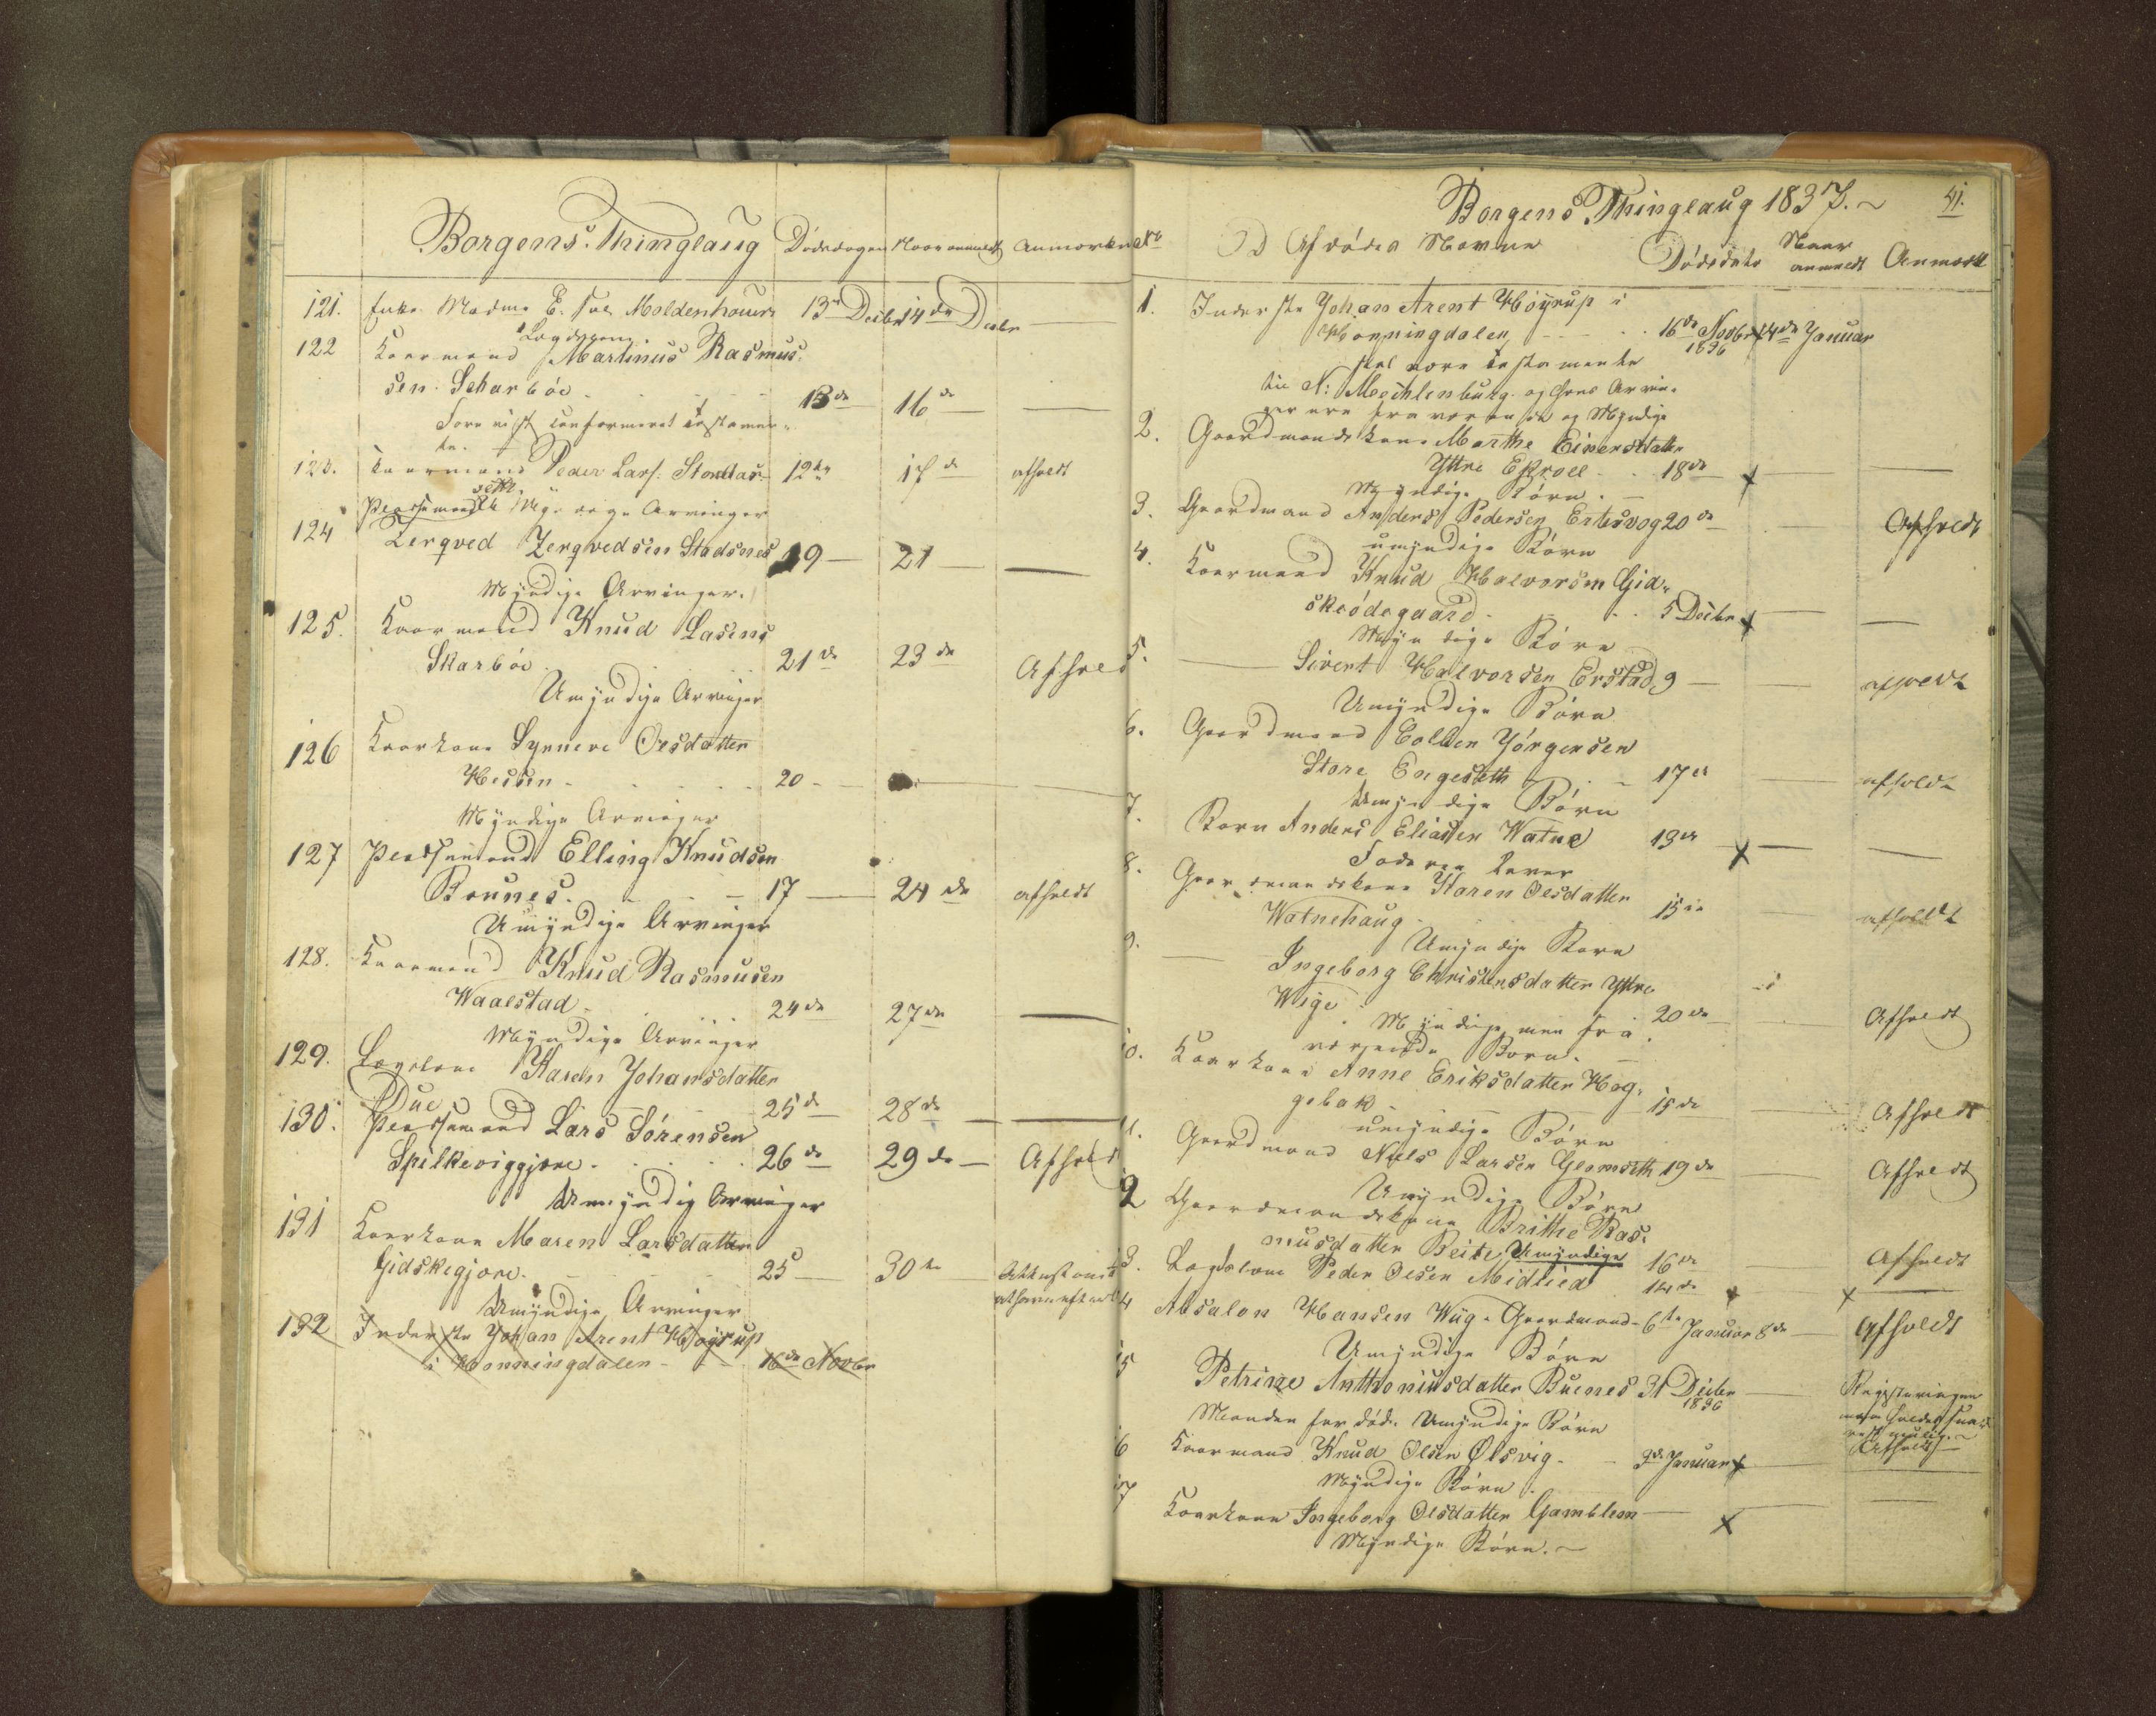 Borgens Thinglaug Dødsdagen Naar anmeldt Anmærkn
121. Enke Madme E. sal. Moldenhouer 13de Decbr 14de Decbr
Lægdslem
122 Kaarmand Martinus Rasmus-
sen Scharbøe 13de 16de
Forevist confirmeret Testamen-
te.
123. Kaarmand Peder Lars. Stordal 12te 17de afholdt
Myndige Arvinger
124 Pladsemand Zergved Zergvedsen Stadsnes 19 — 21 —
Myndige Arvinger.
125. Kaarmand Knud Lasens
Skarbøe 21de 23de Afhold
Umyndige Arvinger
126 Kaarkone Synneve Olsdatter
Hessen 20 —
Myndige Arvinger
127 Pladsemand Elling Knudsen
Bounes. 17 — 24de afholdt
Umyndige Arvinger
128. Kaarmand Knud Rasmusen
Waalstad 24de 27de
Myndige Arvinger
129. Lægslem Karen Johansdatter
Due 25de 28de
130. Pladsemand Lars Sørensen
Spilkeviggjøre 26de 29de — Afholdt
Umyndig Arvinger
131 Kaarkone Maren Larsdatter
Gidskegjøre. 25 — 30te
Umyndige Arvinger
132 Inderste Johan Arent Høyrup
i Honningdalen 16de Novbr
Borgens Thinglaug 1837. 41.
No D Afdødes Navne Dødsdato Naar anmeldt Anmærk
1. Inderste Johan Arent Høyrup i
Honningdalen 16de Novbr 1836 4de Januar
skal være Testamente
til N: Mechlenburg og hans Arvin-
ger ere fraværende og Myndige
2. Gaardmandskone Marthe Einersdatter
Yttre Ekroll 18de
Myndige Børn.
3. Gaardmand Anders Pedersen Ertesvog 20de Afholdt
umyndige Børn
4. Kaarmand Knud Halvorsen Gid-
skeødegaard 5 Decbr
Myndige Børn
5. — Sivert Halvorsen Erstad 9 — afholdt
Umyndige Børn
6. Gaardmand Colben Jørgensen
Store Engeseth 17de afholdt
Umyndige Børn
7. Barn Anders Eliassen Watne 13de
Faderen lever
8. Gaardmandskone Karen Olsdatter
Watnehaug 15de afholdt
Umyndige Børn
9. — Ingeborg Christensdatter Yttre
Wige 20de Afholdt
Myndige men fra-
værende Børn.
10. Kaarkone Anne Eriksdatter Hog-
gebak 15de Afholdt
umyndige Børn
11. Gaardmand Niels Larsen Glomseth 19de Afholdt
Umyndige Børn
12 Gaardmandskone Brithe Ras-
musdatter Beite Umyndige 16de Afholdt
13. Lægslem Peder Olsen Midlied 14de
14 Absalon Hansen Wiig Gaardmand 6te Januar 8de — Afholdt
Umyndige Børn
15 Petrine Anthoniusdatter Buenes 31 Decbr 1836 Registeringen
maa holdes snarest mulig.
Manden før død. Umyndige Børn Afholdt
16 Kaarmand Knud Olsen Olsvig 3de Januar
Myndige Børn.
17 Kaarkone Ingeborg Olsdatter Gamblem
Myndige Børn.